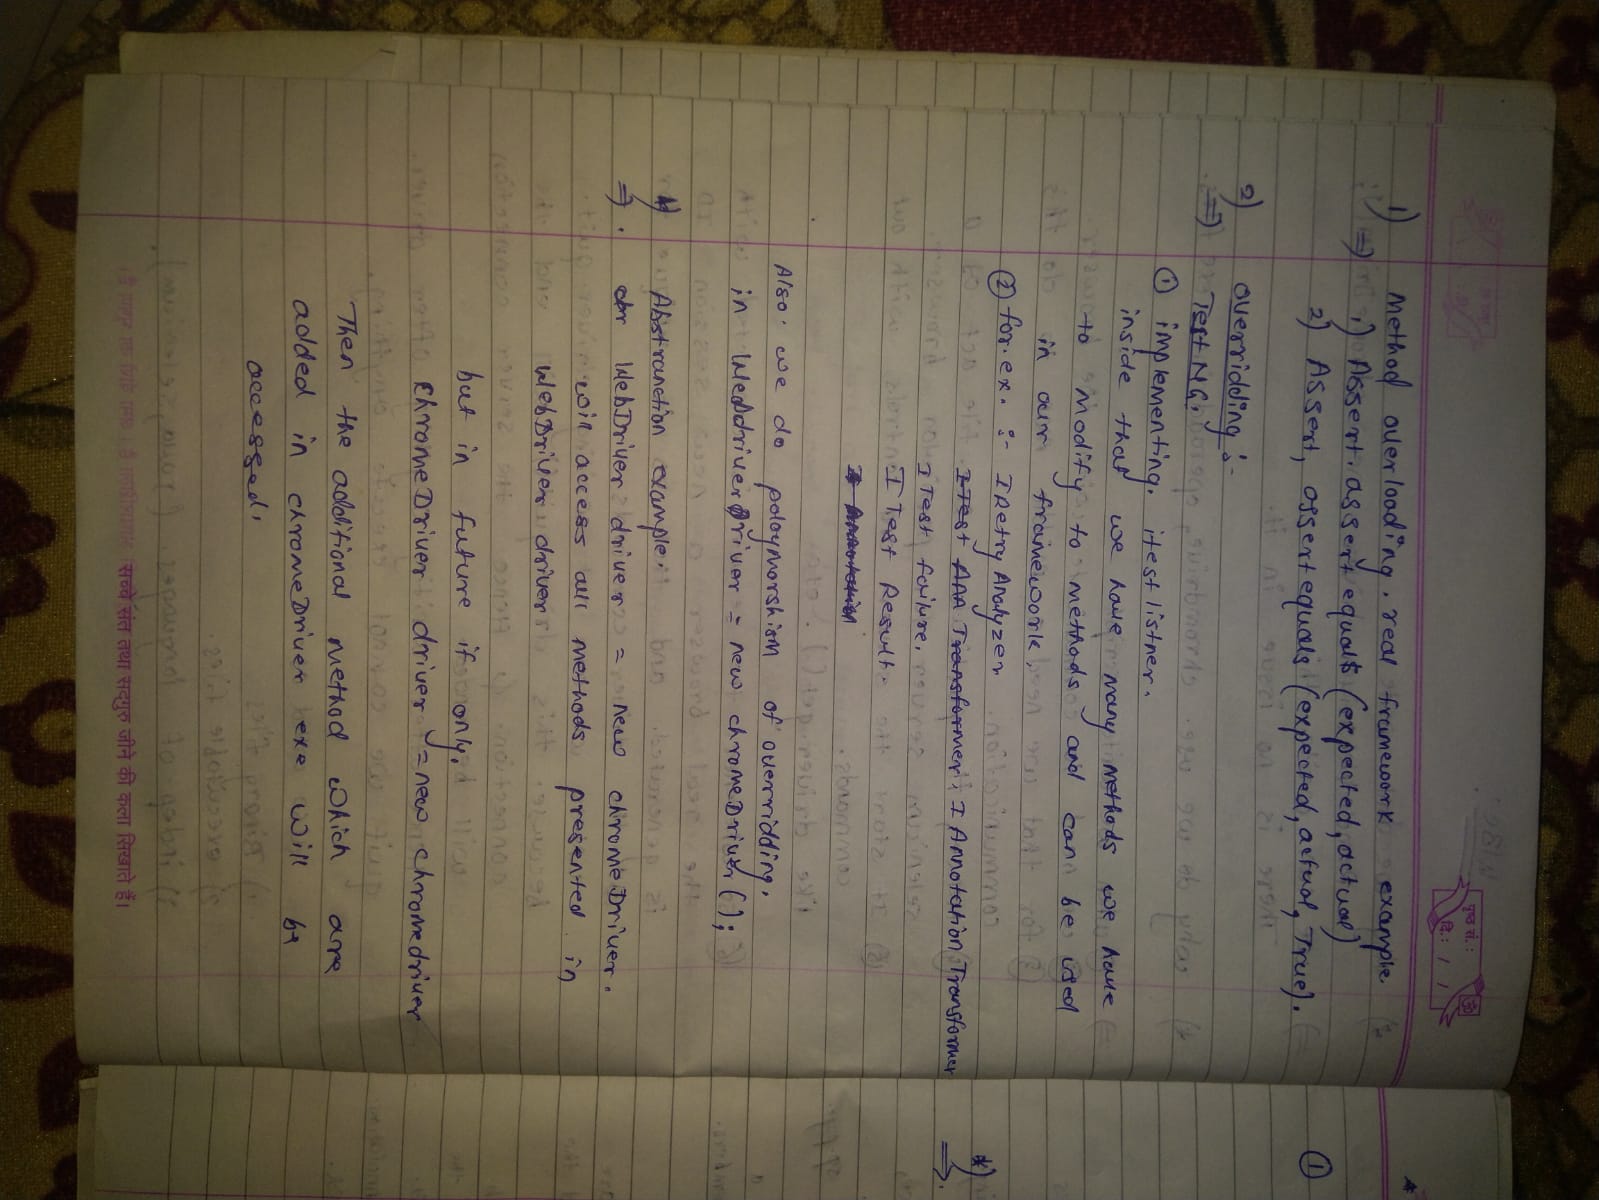 पृष्ठ सं.:
दि.: / /
1) Method overloading. real framework example.
=) 1) Assert. assert equals (expected, actual)
2) Assert, assert equals (expected, actual, True).
2) overridding :-
=) TestNG.
① implementing. itest listner.
inside that we have many methods we have
to modify to methods and can be used
in our framework,
② for. ex. :- IRetry Analyzer
ITest AAA Transformer, I Annotation Transformer
I Test failure.
I Test Result
Also. we do poloymorshism of overridding.
in Webdriver Driver = new chromeDriver();
Abstraction example
=) . or WebDriver driver = new chromeDriver.
will access all methods presented in
WebDriver driver
but in future if only.
ChromeDriver driver = new chromedriver
Then the additional method which are
added in chromeDriver exe will be
accessed.
सच्चे संत तथा सद्गुरु जीने की कला सिखाते हैं।
①
*)
=>.